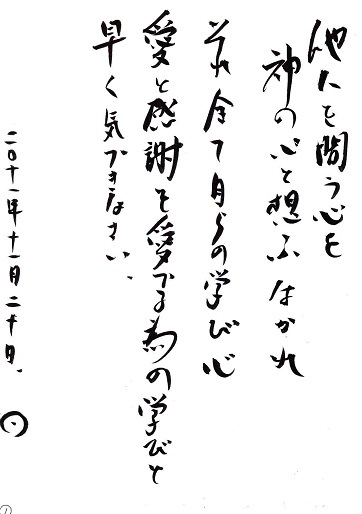 他人を問う心を
神の心と想ふはかれ
それ全て自らの学び心
愛と感謝を愛する為の学びと
早く気づきなさい、
二〇十一年十一月二十日、